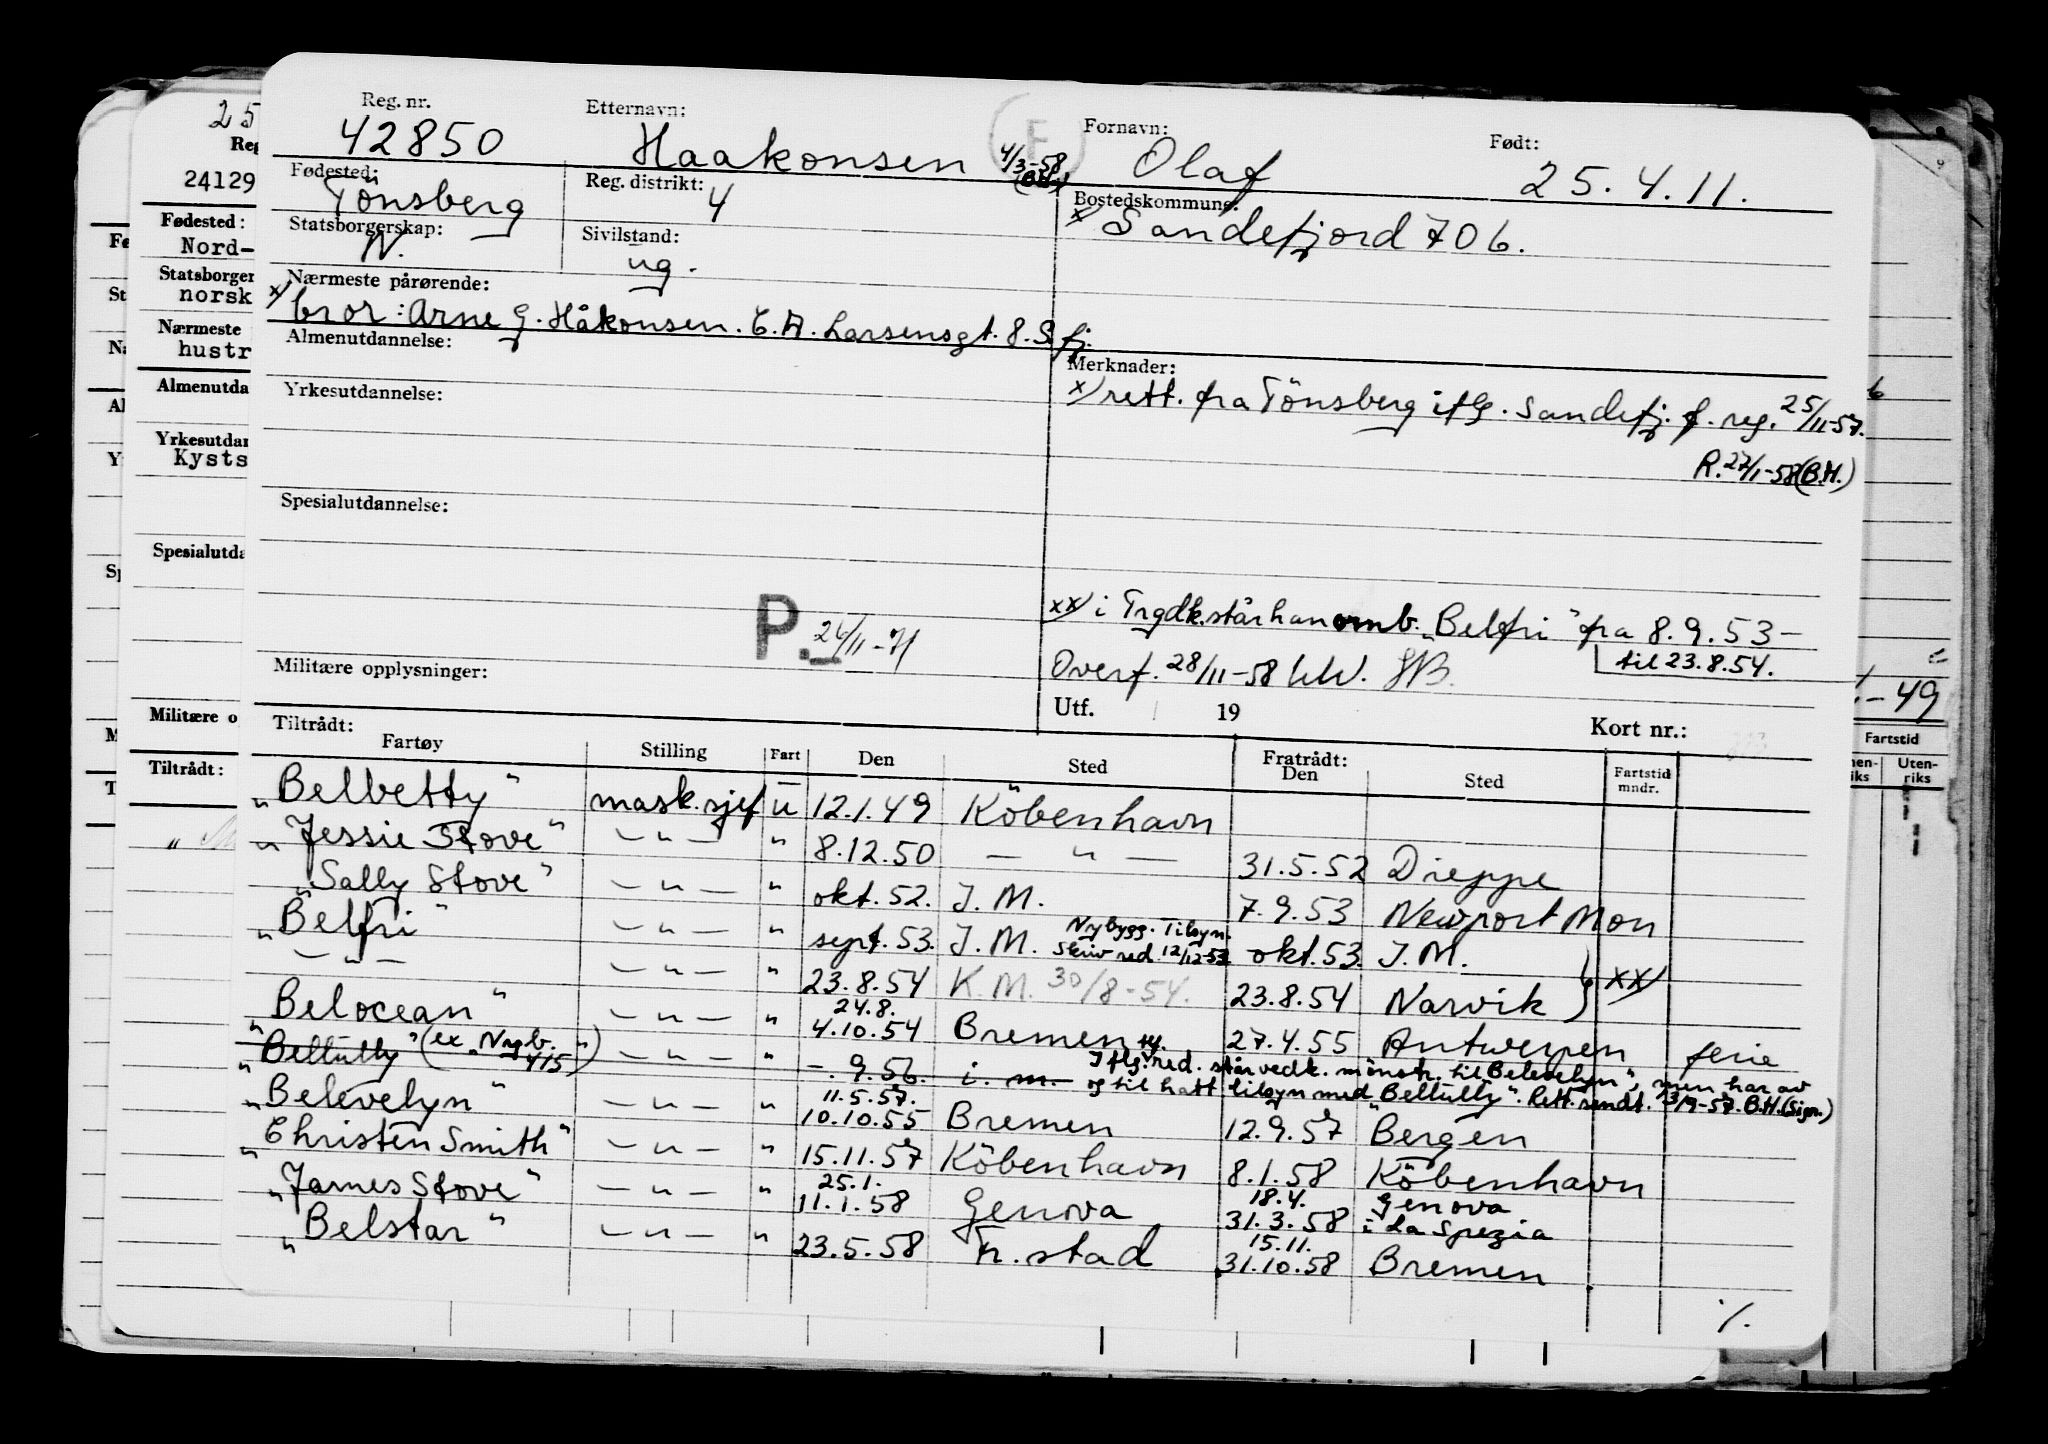 Reg. nr. Etternavn: Fornavn: Født:
42850 Haakonsen F 4/3-58 (BH.) Olaf 25.4.11.
Fødested: Reg. distrikt: Bostedskommune:
Tönsberg 4 x/ Sandefjord 706.
Statsborgerskap: Sivilstand:
N. ug.
Nærmeste pårørende:
x/ bror: Arne G. Håkonsen. C. A. Larsensgt. 8. S.fj.
Almenutdannelse: Merknader:
x/ rett. fra Tönsberg iflg. Sandefj. f. reg. 25/11-57.
Yrkesutdannelse:
R. 27/1-58 (B.H.)
Spesialutdannelse:
xx/ i Trgdk. står han omb. "Belfri" fra 8.9.53-
til 23.8.54.
P. 26/11-71
Militære opplysninger: Overf. 28/11-58
Utf. 19 Kort nr.:
Tiltrådt: Fratrådt:
Fartøy Stilling Fart Den Sted Den Sted Fartstid mndr.
"Belbetty" mask.sjef u 12.1.49 Köbenhavn
"Jessie Stove" — " — " 8.12.50 — " — 31.5.52 Dieppe
"Sally Stove" — " — " okt. 52. I. M. 7.9.53 Newport Mon
"Belfri" — " — " sept. 53. I. M. Nybygg. Tilsyn. Skriv red. 12/12-53 okt. 53. I. M.
— " — — " — " 23.8.54 K. M. 30/8-54. 23.8.54 Narvik } xx/
"Belocean" — " — " 24.8. 4.10.54 Bremen 27.4.55 Antwerpen ferie
"Beltully" (ex "Nyb. 415") — " — " —.9.56. i. m. Iflg. red. står vedk. mönstr. til "Belevelyn", men har av
og til hatt tilsyn med "Beltully". Rett. sendt. 13/9-57. B.H. (Sign.)
"Belevelyn" — " — " 11.5.57. 10.10.55 Bremen 12.9.57 Bergen
"Christen Smith" — " — " 15.11.57 Köbenhavn 8.1.58 Köbenhavn
"James Stove" — " — " 25.1. 11.1.58 Genova 18.4. 31.3.58 Genova i La Spezia
"Belstar" — " — " 23.5.58 Fr. stad 15.11. 31.10.58 Bremen
./.
25
Reg
24129
Fødested:
Nord-
Statsborger
norsk
Nærmeste
hustr
Almenutda
Yrkesutdan
Kysts
Spesialutda
Militære o
Tiltrådt:
-49
Fartstid
Uten-
riks